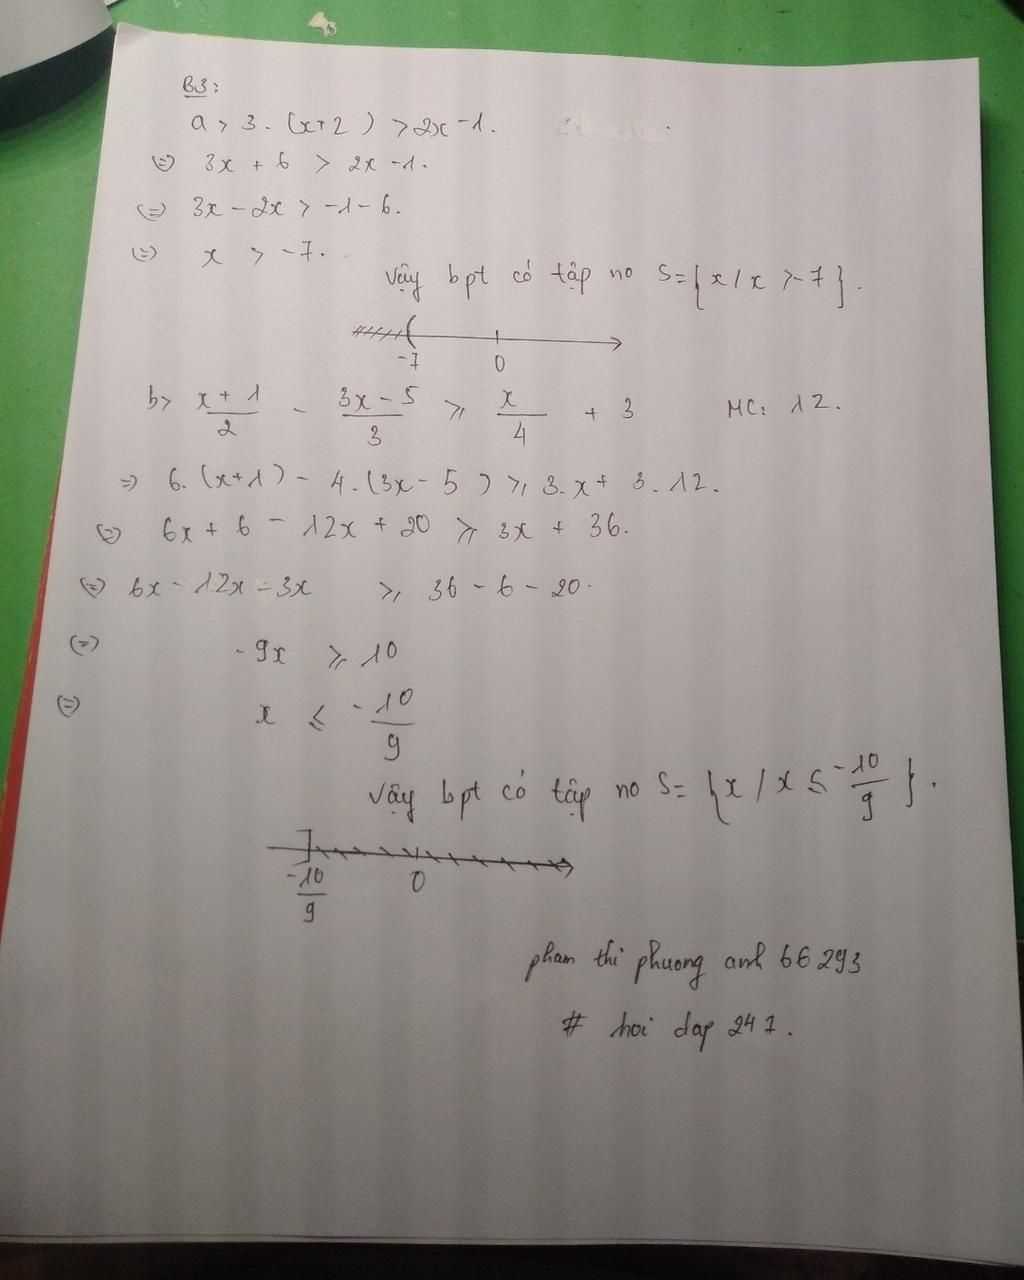 B3:
a> 3.(x+2) > 2x-1.
(=) 3x + 6 > 2x -1.
(=) 3x - 2x > -1 - 6.
(=) x > -7.
Vậy bpt có tập no S={x/x >-7}.
-7 0
b> \frac{x+1}{2} - \frac{3x-5}{3} ⩾ \frac{x}{4} + 3 MC: 12.
=) 6.(x+1) - 4.(3x-5) ⩾ 3.x + 3.12.
(=) 6x + 6 - 12x + 20 ⩾ 3x + 36.
(=) 6x - 12x - 3x ⩾ 36 - 6 - 20.
(=) -9x ⩾ 10
(=) x ⩽ -\frac{10}{9}
Vậy bpt có tập no S= {x/x ⩽ -\frac{10}{9}}.
-\frac{10}{9} 0
phan thi phuong anh 66293
# hoi dap 247.